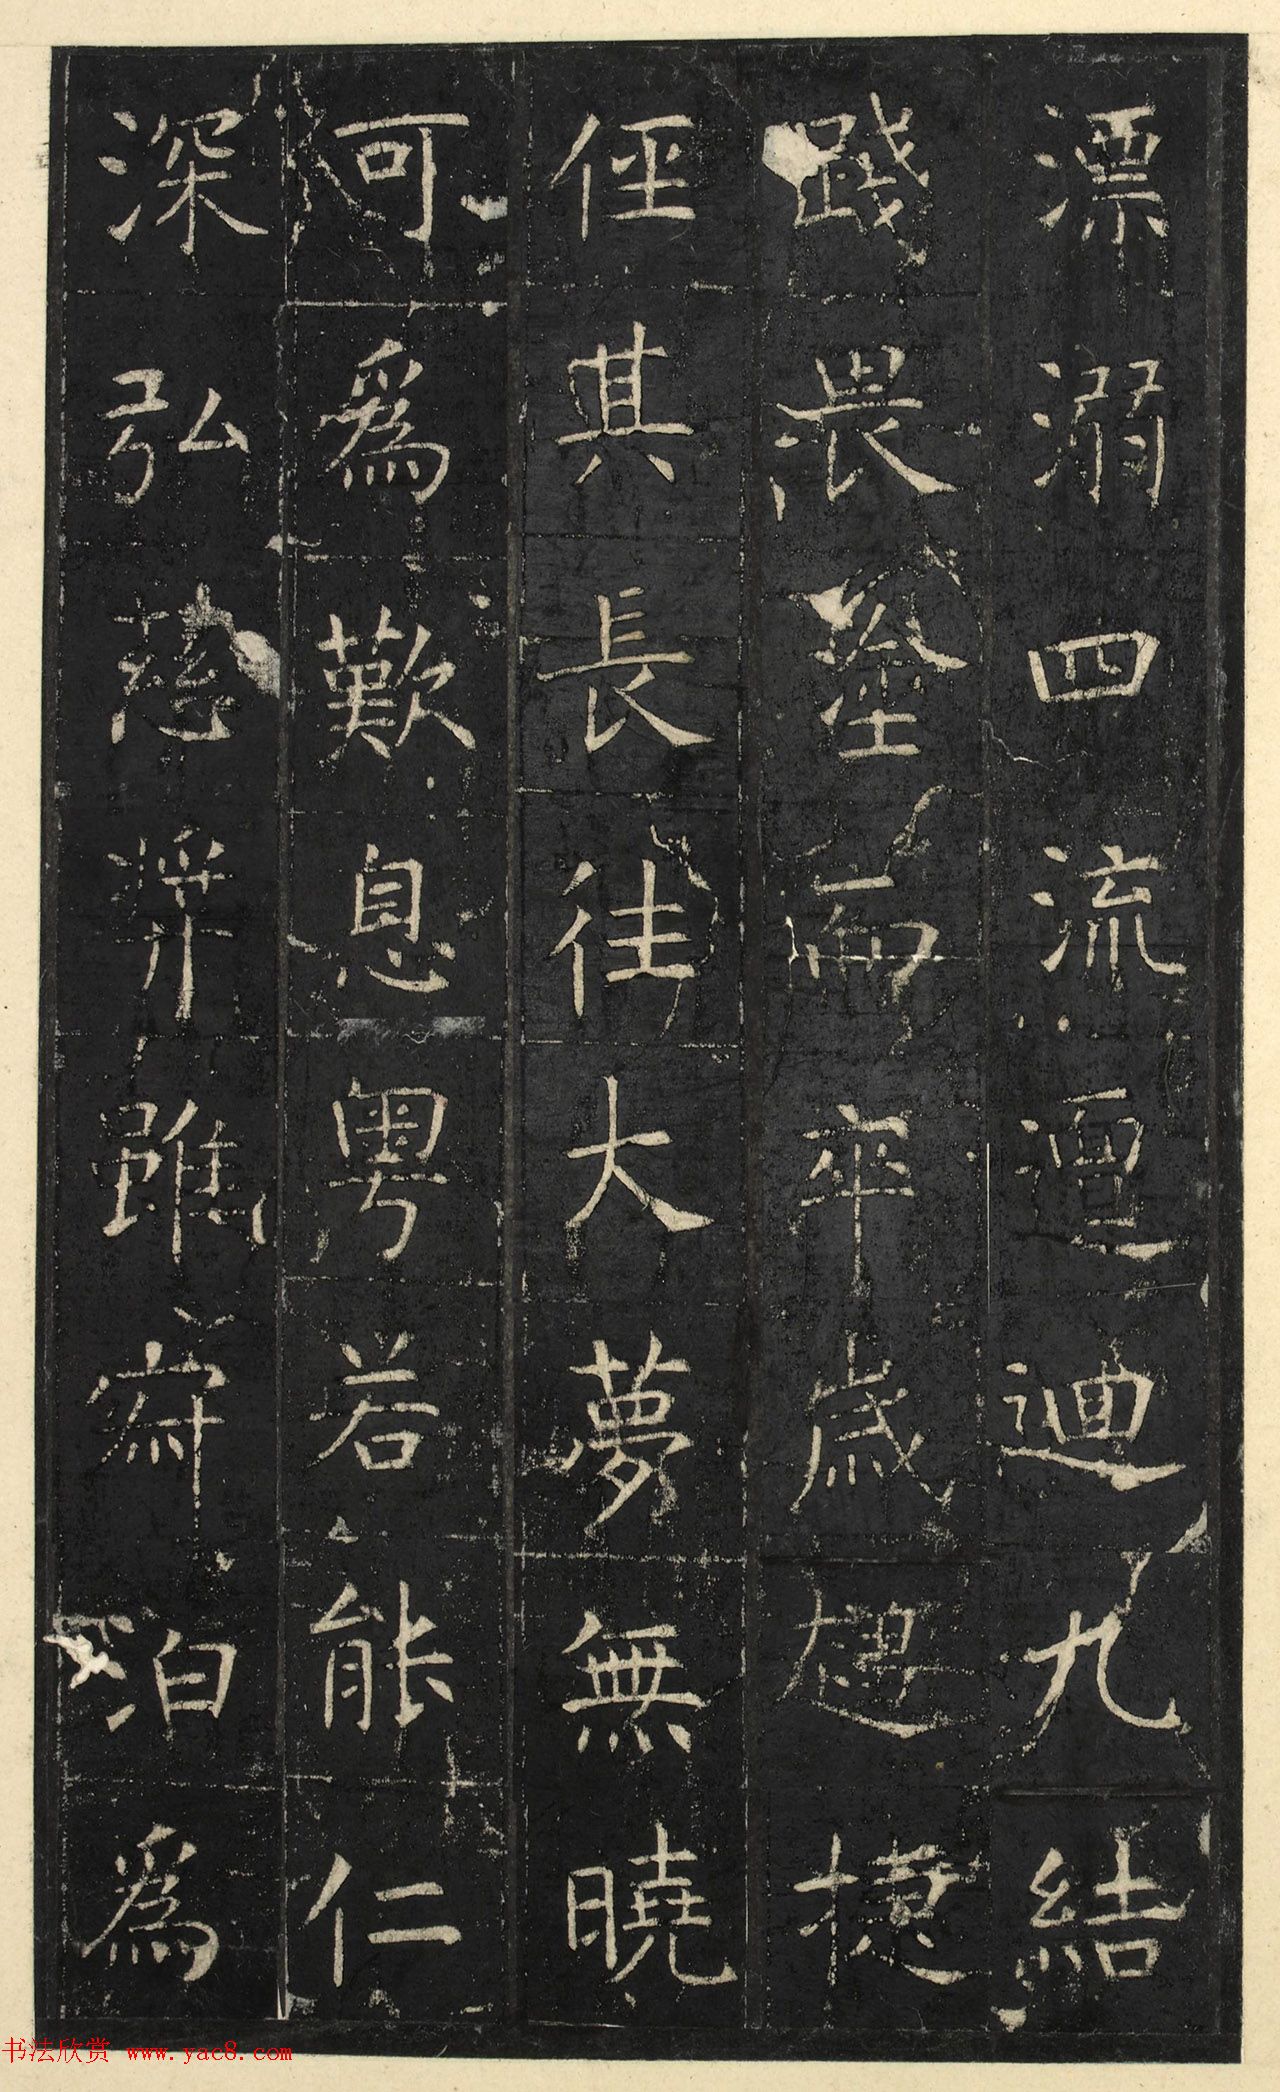 漂溺四流邅迴九結
踐畏塗而卒歲趨捷
俓其長往大夢無曉
可爲歎息粤若能仁
深弘慈弉雖寂泊爲
书法欣赏 www.yac8.com